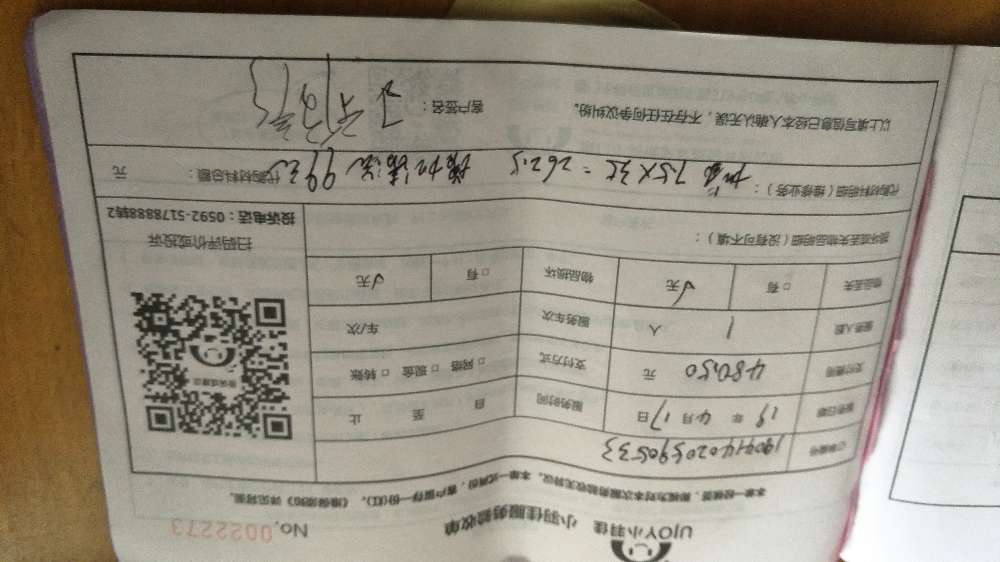 UJOY小羽佳 小羽佳服务验收单
No.0022273
本单一经核签，即视为对本次服务验收无异议。本单一式两份，客户留存一份(红)。《维保须知》详见背面。
订单编号 19041402039 0533
服务日期 19 年 4 月 17 日 服务时间 自 至 止
支付费用 480.50 元 支付方式 □ 网络 □ 现金 □ 转账
服务人数 1 人 服务车次 车/次
物品丢失 □ 有 √ 无 物品损坏 □ 有 √ 无
微信或建议
扫码评价或投诉
投诉电话：0592-5178888转2
损坏或丢失物品明细（没有可不填）：
代购材料明细（维修业务）： 7.5×35=262.5 99元 代购材料总额： 元
以上填写信息已经本人确认无误，不存在任何争议纠纷。 客户签名：